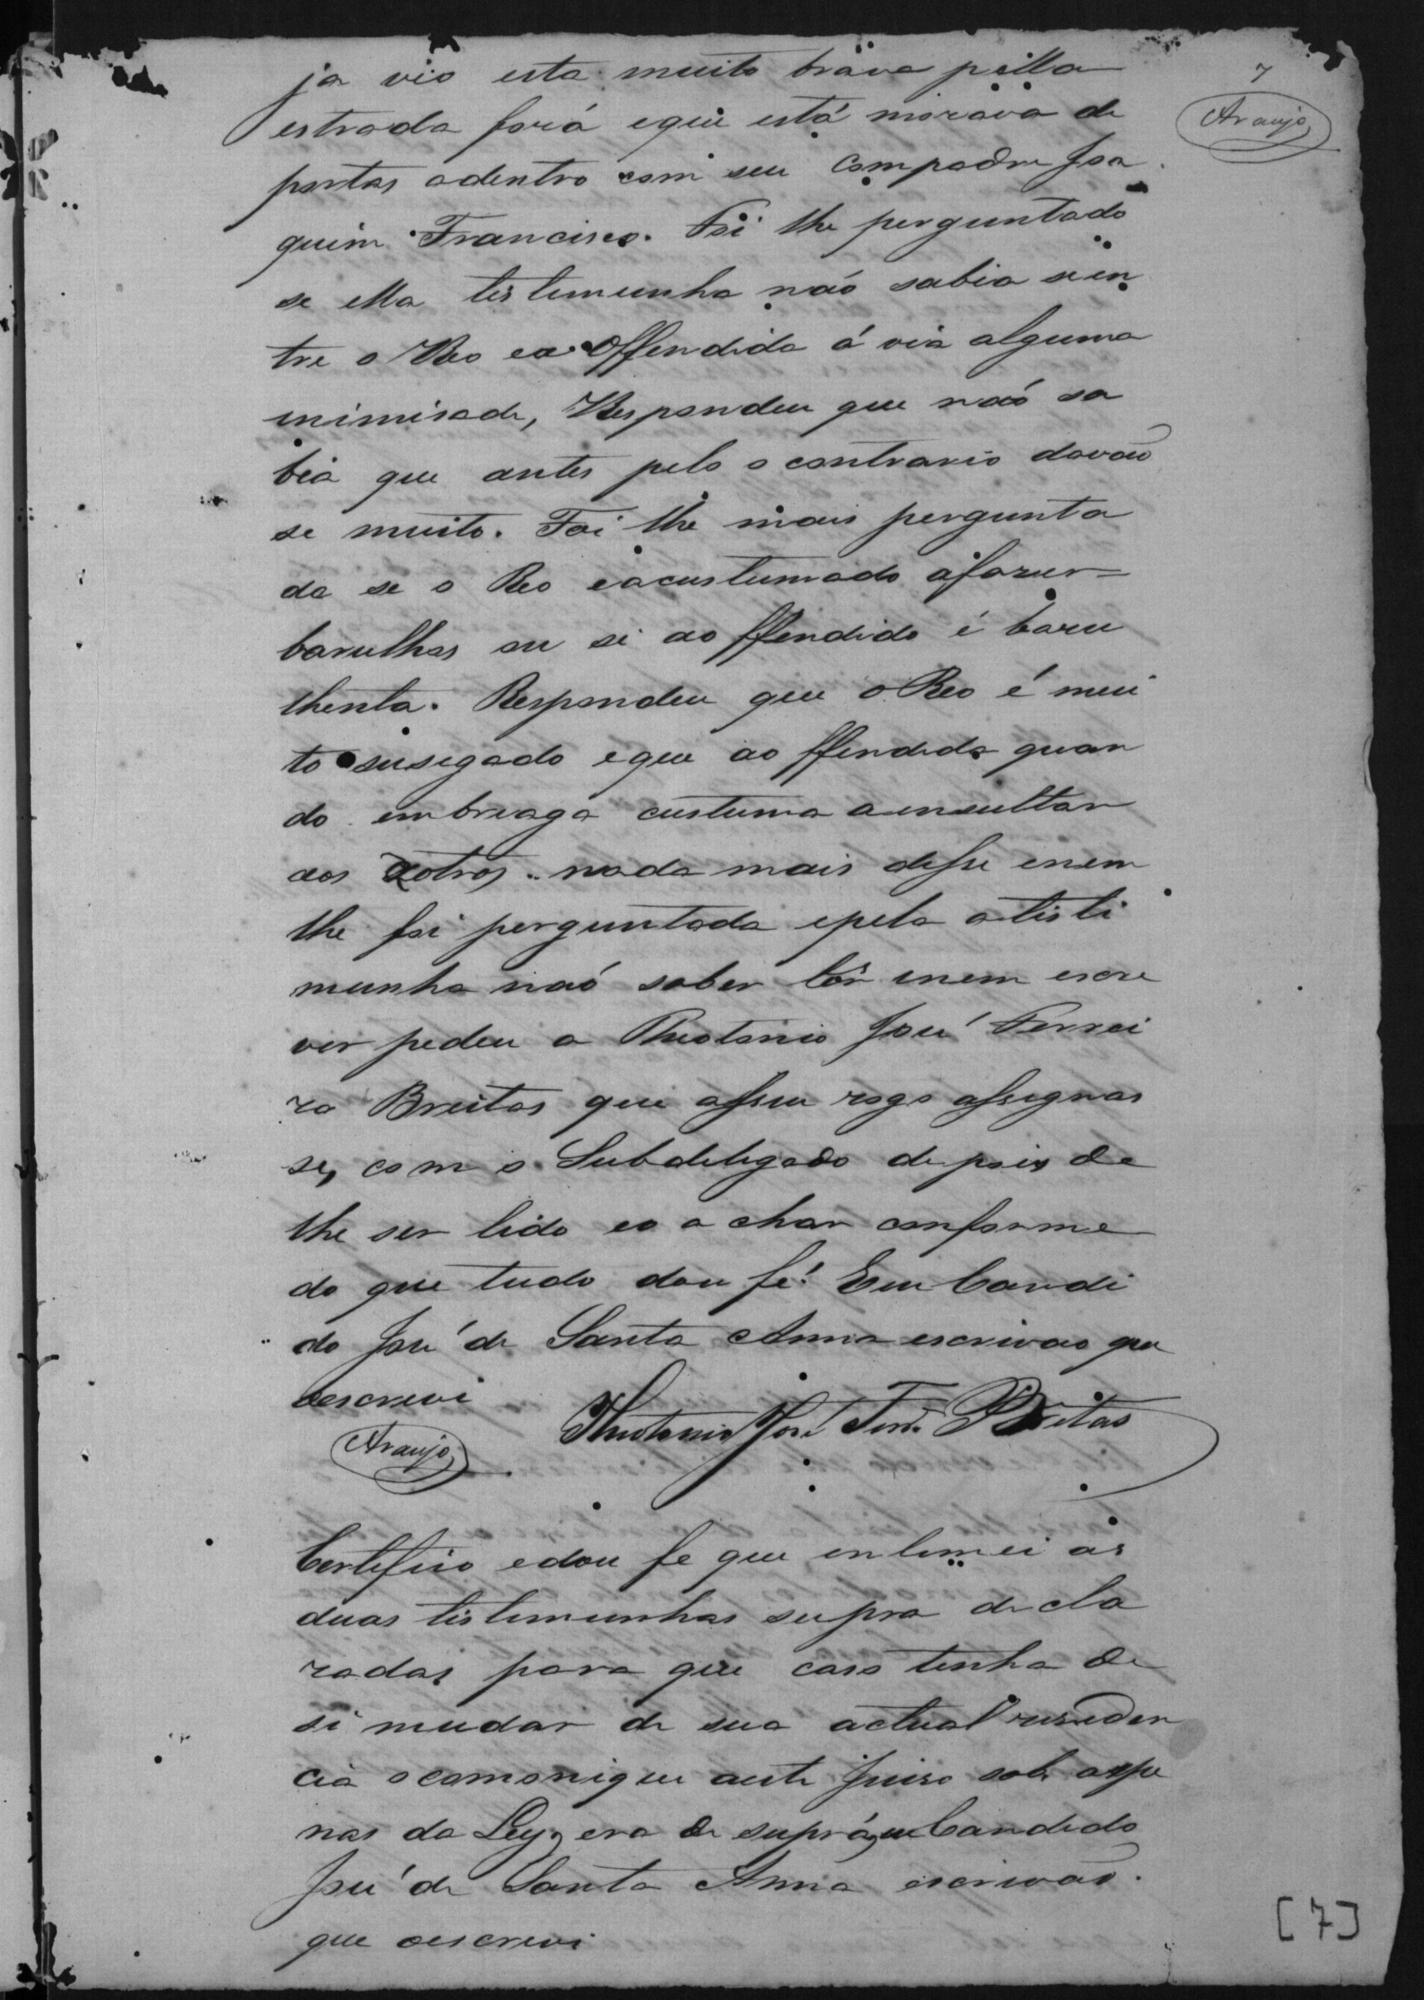 7
Araujo
ja vio esta muito brava pella
estrada forá eque está morava de
portas adentro com seu Compadre Joa
quim Francisco. Foi lhe perguntado
se ella testemunha não sabia sien
tre o Reo ea Offendida á via alguma
inimisade, Respondeu que não sa
bia que antes pelo o contrario davaõ
se muito. Foi lhe mais pergunta
do se o Reo eacustumado afazer
barulhos ou si ao ffendido é baru
lhenta. Respondeu que o Reo é mui
to susegado eque ao ffendida quan
do embreaga custuma ainsultar
aos outros. nada mais disse enem
lhe foi perguntado epela a testi
munha naó saber lêr enem escre
ver pedeu a Theotonio José Ferrei
ra Breitas que asseu rogo assignas
se, com o Subdelegado depois de
lhe ser lido eo a char conforme
do que tudo dou fé. Eu Candi
do José de Santa Anna escrivao que
oescrevi
Araujo
Theotonio José Ferrª Breitas
Certefico edou fe que entimei as
duas testemunhas supra decla
radas para que caso tenha de
si mudar de sua actual residen
cia ocomonique aeste Juiso sob aspe
nas da Ley, era de supra, eu Candido
José de Santa Anna escrivaõ.
que oescrevi
[7]